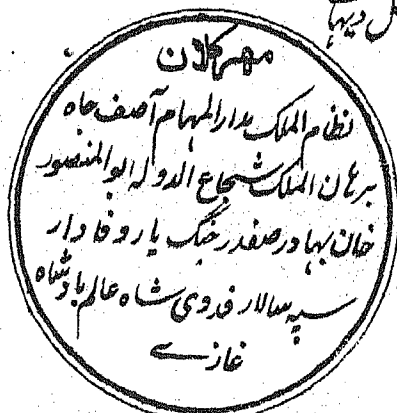 کل دیہات
مہر کلان
نظام الملک مدار المہام آصف جاہ
برہان الملک شجاع الدولہ ابو المنصور
خان بہادر صفدر جنگ یار وفادار
سپہ سالار فدوی شاہ عالم بادشاہ
غازے